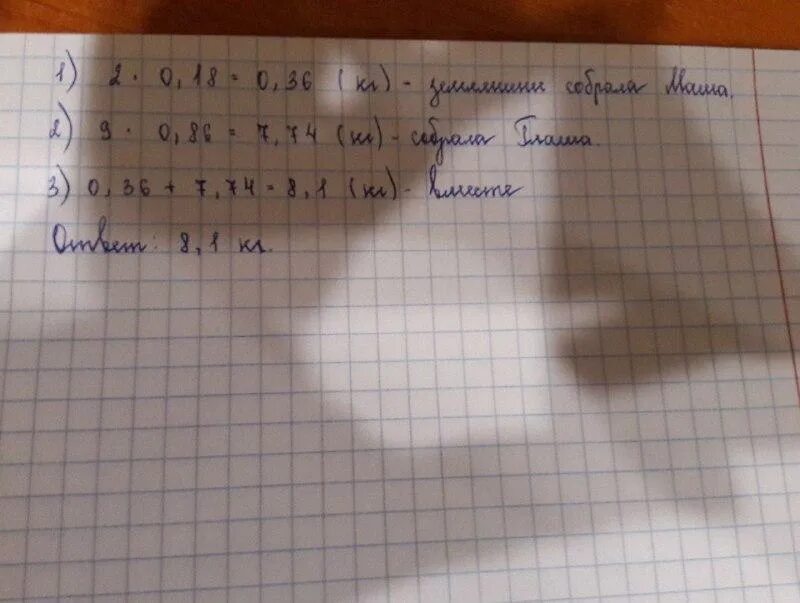 1) 2 · 0,18 = 0,36 (кг) - земляники собрала Маша.
2) 9 · 0,86 = 7,74 (кг) - собрала Глаша.
3) 0,36 + 7,74 = 8,1 (кг) - вместе
Ответ: 8,1 кг.